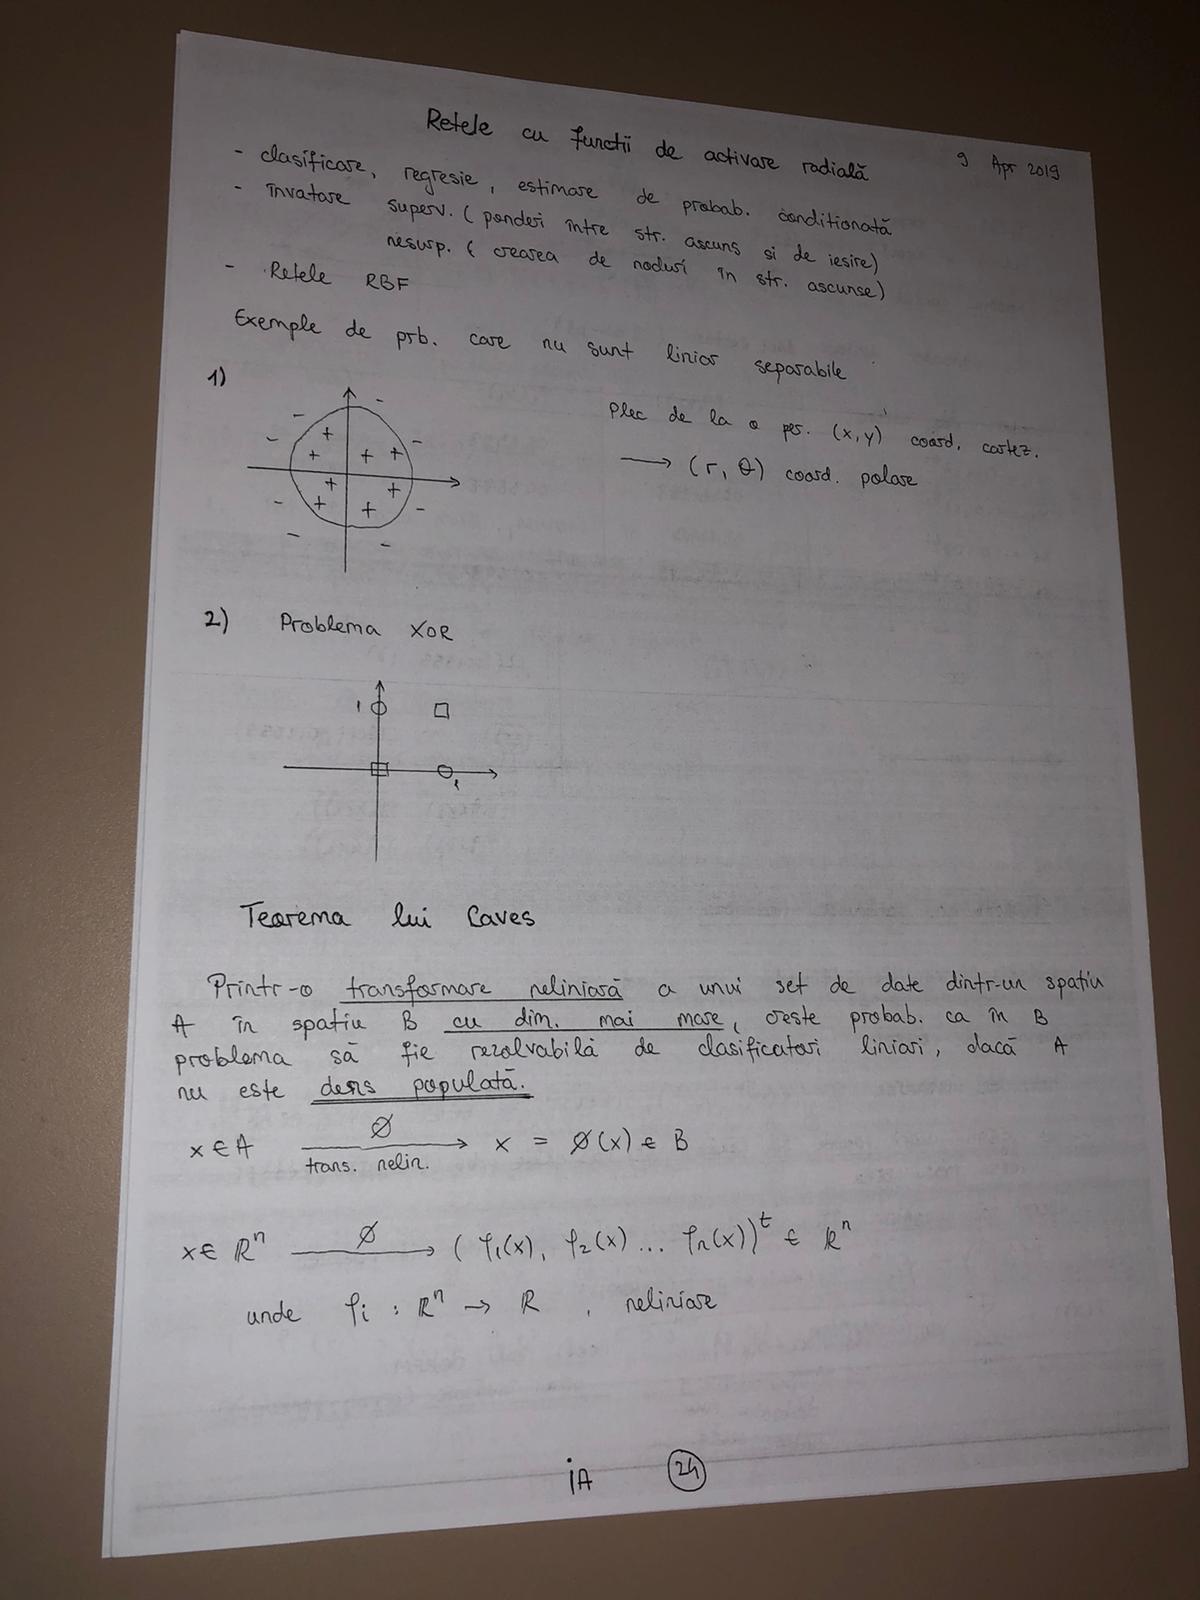 Retele cu functii de activare radială
9 Apr 2019
- clasificare, regresie, estimare de probab. conditionată
- învatare superv. ( ponderi între str. ascuns si de iesire)
nesup. ( crearea de noduri în str. ascunse)
- Retele RBF
Exemple de prb. care nu sunt liniar separabile
1)
Plec de la o per. (x,y) coord. cartez.
⟶ (r, θ) coord. polare
2) Problema XOR
1
1
Teorema lui Caves
Printr-o transformare neliniară a unui set de date dintr-un spatiu
A în spatiu B cu dim. mai mare, este probab. ca în B
problema să fie rezolvabilă de clasificatori liniari, dacă A
nu este dens populată.
x ∈ A ⟶ x = ∅(x) ∈ B
∅
trans. nelin.
x ∈ ℝⁿ ⟶ ( φ₁(x), φ₂(x) ... φₙ(x))ᵗ ∈ ℝⁿ
∅
unde φᵢ : ℝⁿ → ℝ , neliniare
iA 24